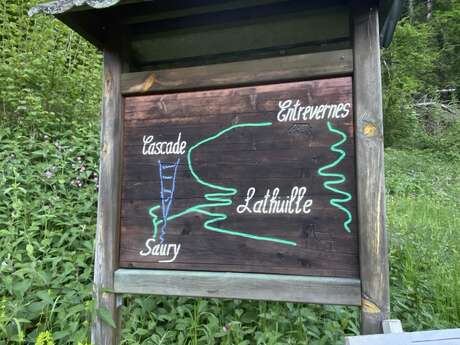 Entrevernes
Cascade
Lathuille
Saury